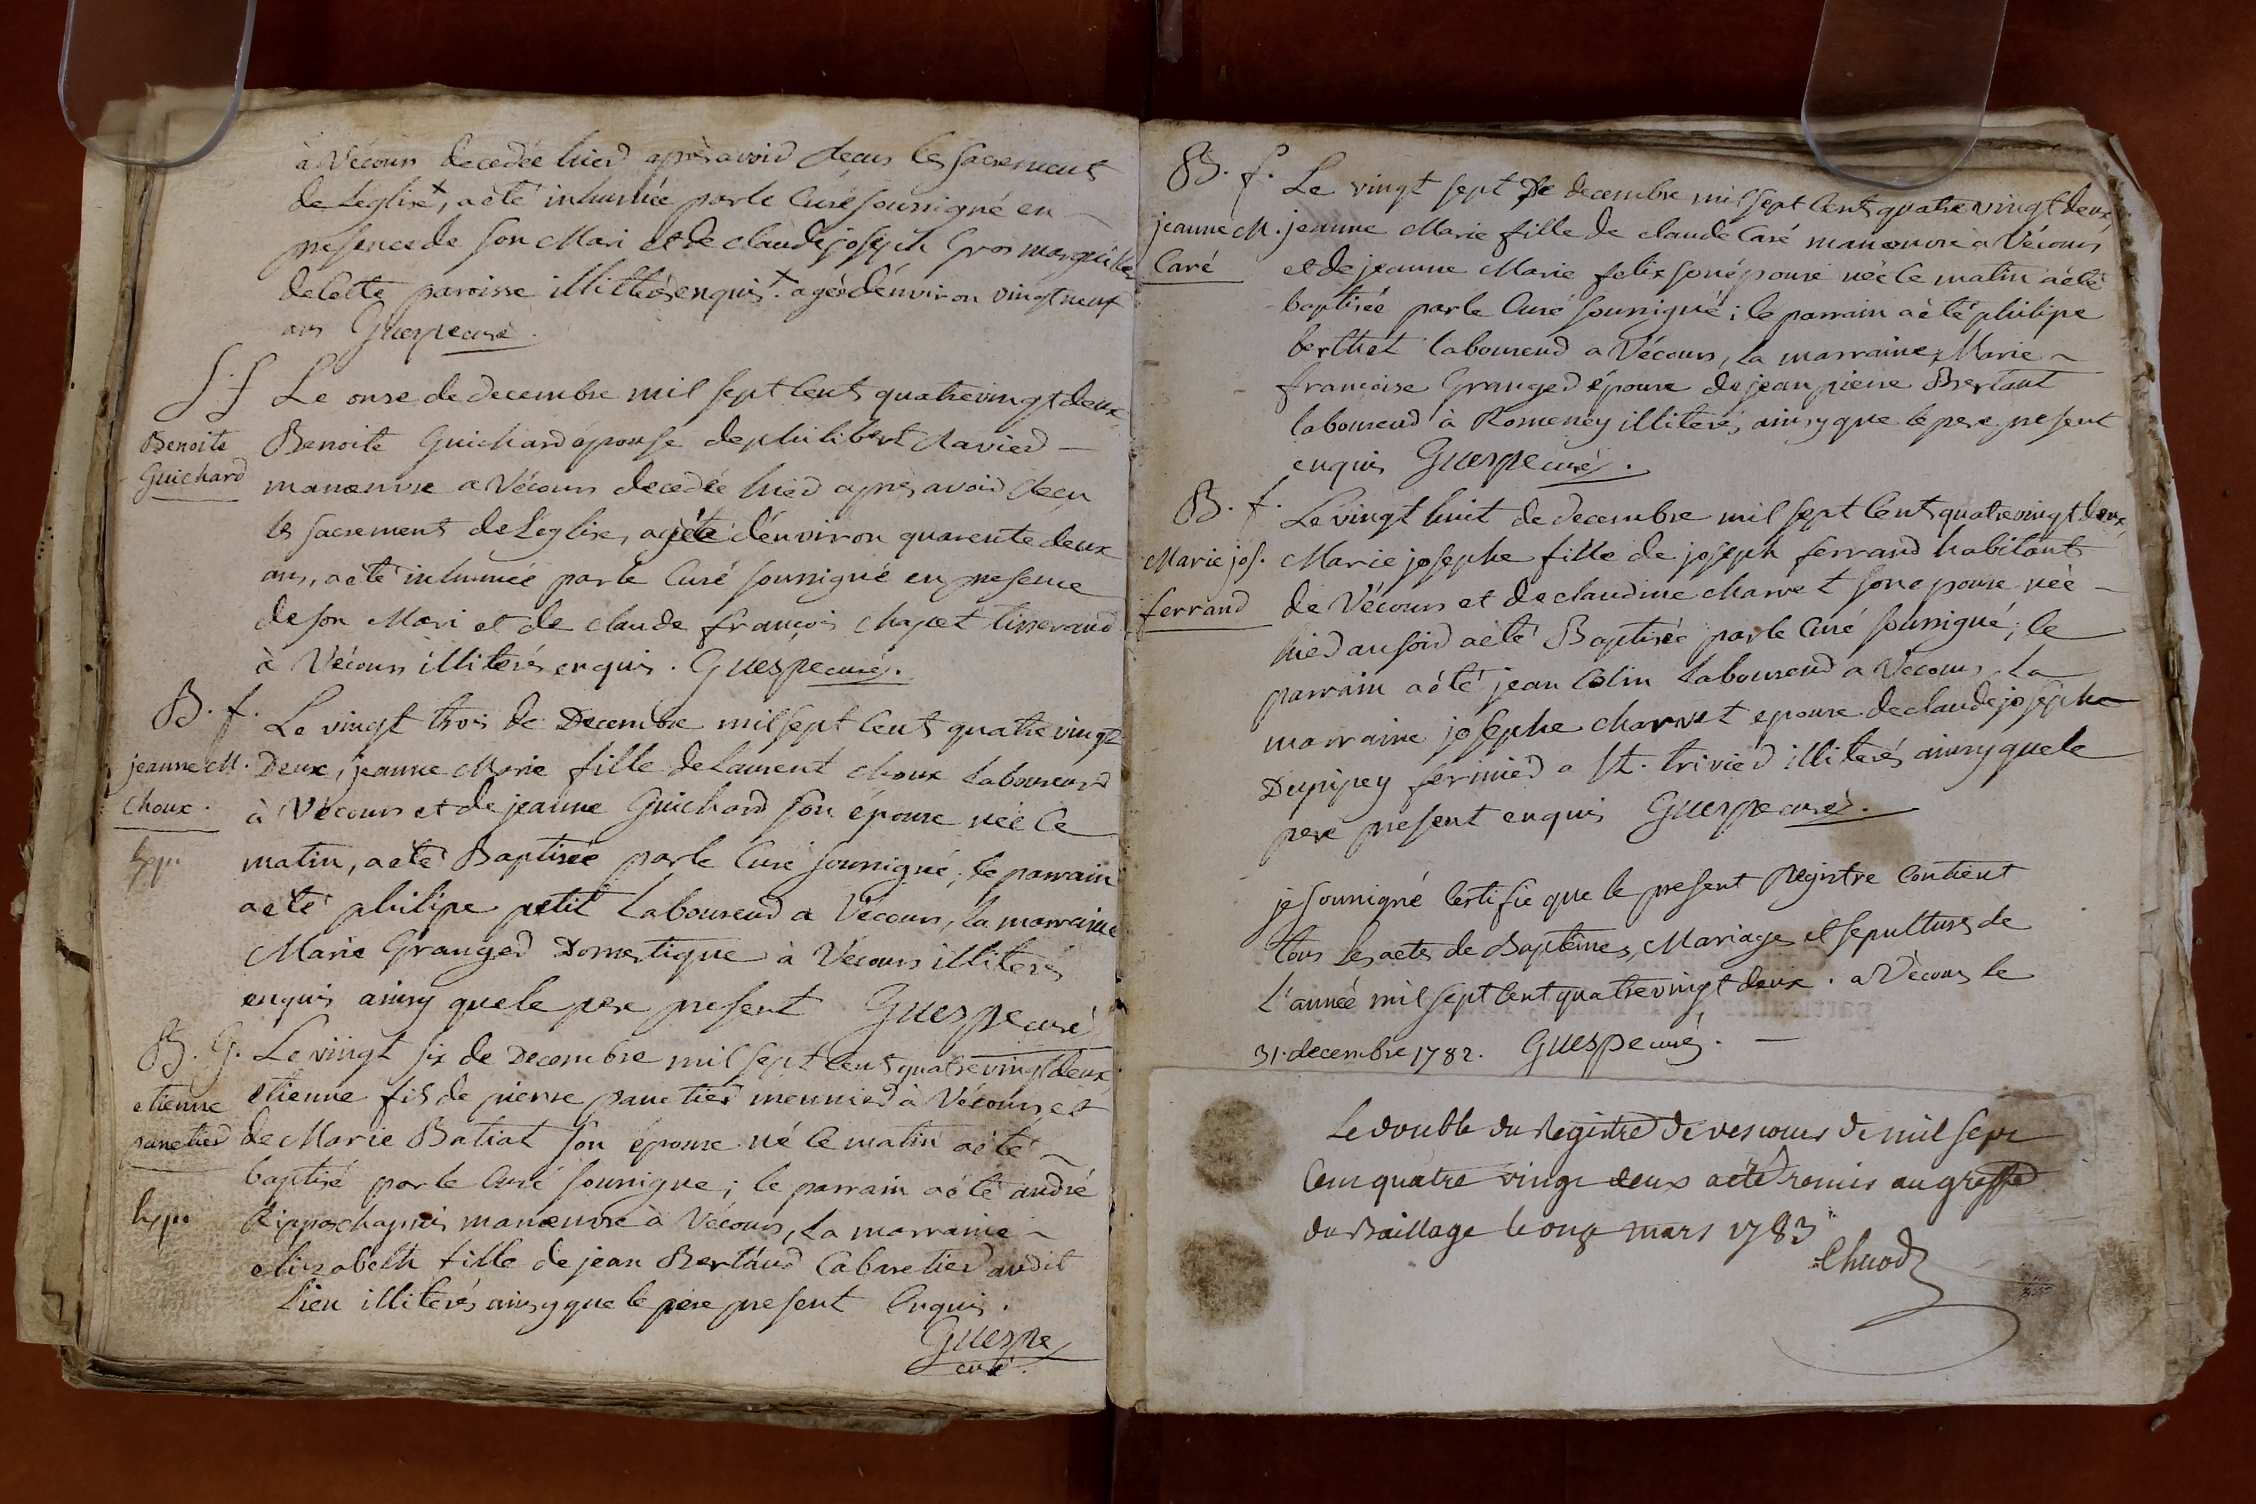 à Vécours decedée hier après avoir reçus les sacrements
de Léglise+, a été inhumée par le Curé soussigné en
presence de son Mari et de claude joseph Gros
de Cette paroisse illitérés enquis +. agée d'énviron vingt neuf
ans Guespe curé.
S. f
Benoite
Guichard
Le onse de decembre mil sept Cent quatre vingt deux
Benoite Guichard épouse de philibert Ravier
manœuvre a Vécours decedée hier après avoir reçu
les sacrement de Léglise, agée d'énviron quarente deux
ans, a été inhumée par le Curé soussigné en presence
de son Mari et de claude françois chapet tisserand
à Vécours illiterés enquis. Guespe curé.
B. f.
jeanne M.
Choux.
Le vingt trois de Decembre mil sept Cent quatre vingt
Deux, jeanne Marie fille de Laurent choux laboureur
à Vécours et de jeanne Guichard son épouse née Ce
matin, a été Baptisée par le Curé soussigné; le parrain
a été philipe petit Laboureur a Vécours, la marraine
Marie Granger Domestique à Vécours illiterés
enquis ainsy que le pere present Guespe curé
B. G.
etienne
panetier
Le vingt six de Decembre mil sept Cent quatre vingt deux
etienne fils de pierre panetier meunier à Vécours et
de Marie Batiat son épouse né Ce matin a été
baptisé par le Curé soussigné; le parrain a été andré
manœuvre à Vécours, la marraine
elizabeth fille de jean Bertaud Cabaretier audit
Lieu illiterés ainsy que le pere present Enquis.
Guespe
curé.
B. f.
jeanne M.
Caré
Le vingt sept De decembre mil sept Cent quatre vingt deux
jeanne Marie fille de claude Caré manœuvre a Vécours
et de jeanne Marie felix son épouse née Ce matin a été
baptisée par le Curé soussigné; le parrain a été philipe
berthet laboureur a Vécours, la marraine Marie
françoise Granger épouse de jean pierre Bertaut
laboureur à Romeney illiterés ainsy que le pere present
enquis Guespe curé.
B. f.
Marie jos.
ferrand
Le vingt huit de decembre mil sept Cent quatre vingt deux
Marie josephe fille de joseph ferrand habitant
de Vécours et de claudine charvet son epouse née
hier au soir a été Baptisée par le Curé soussigné; le
parrain a été jean Colin Laboureur a Vécours, La
marraine josephe charvet epouse de claude joseph
Dupupey fermier a St. trivier illiterés ainsy que le
pere present enquis Guespe curé.
je soussigné Certifie que le present Registre Contient
tous les actes de Baptêmes, Mariages et sepultures de
L'année mil sept Cent quatre vingt deux. a Vécours le
31. decembre 1782. Guespe curé.
Le double du Registre de vescours de mil sept
Cent quatre vingt deux a été remis au greffe
du Baillage le onze mars 1783